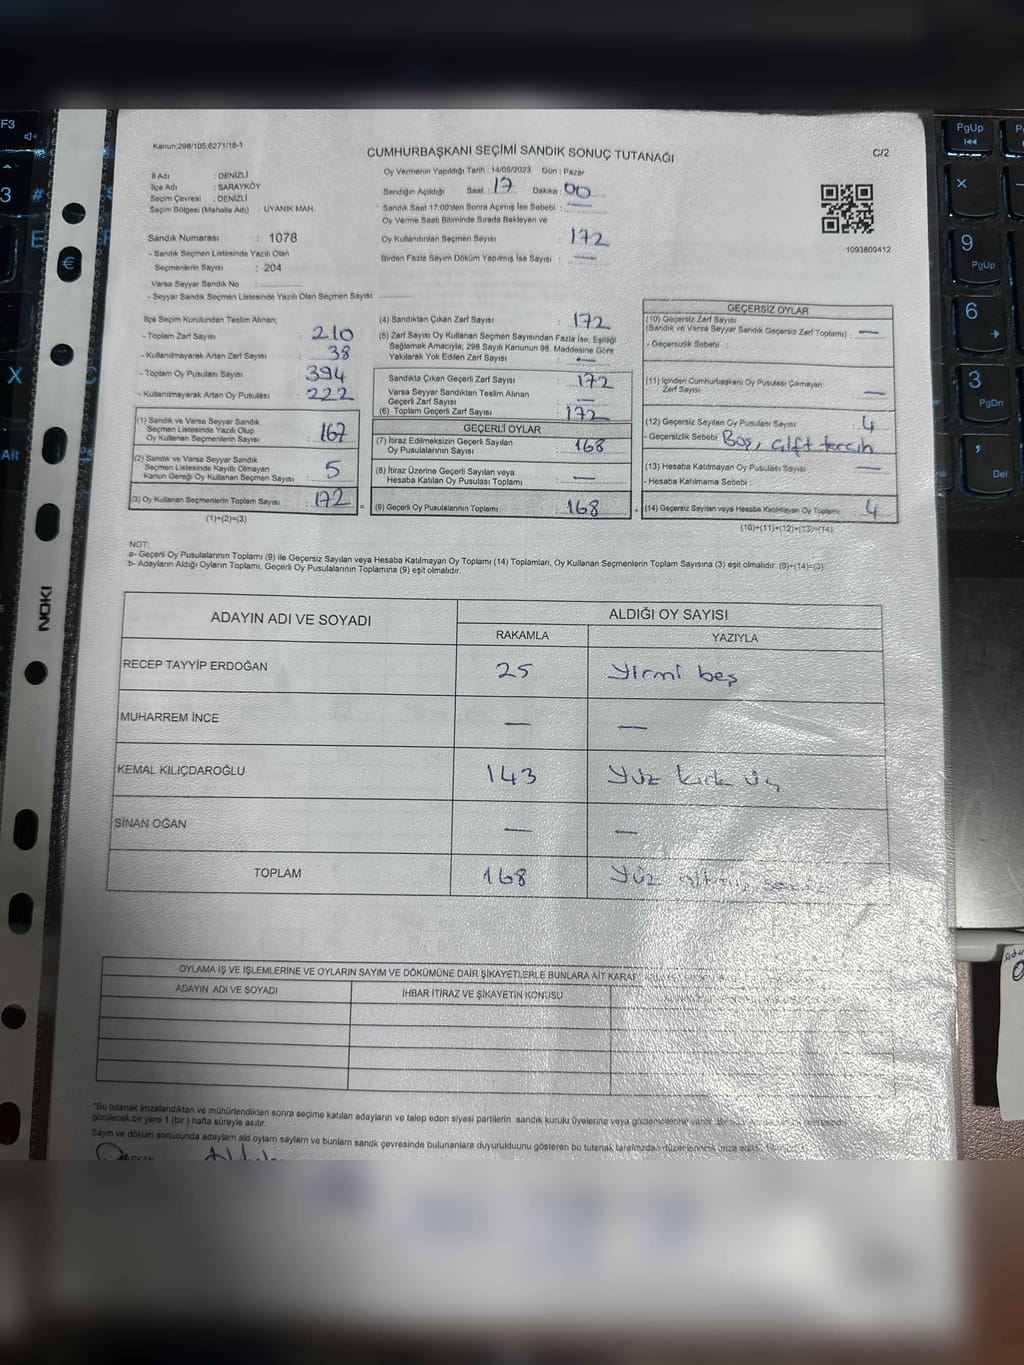 Kanun;298/105;6271/18-1
CUMHURBAŞKANI SEÇİMİ SANDIK SONUÇ TUTANAĞI
C/2
İl Adı : DENİZLİ
İlçe Adı : SARAYKÖY
Seçim Çevresi : DENİZLİ
Seçim Bölgesi (Mahalle Adı) : UYANIK MAH.
Sandık Numarası : 1078
- Sandık Seçmen Listesinde Yazılı Olan
Seçmenlerin Sayısı : 204
Varsa Seyyar Sandık No
- Seyyar Sandık Seçmen Listesinde Yazılı Olan Seçmen Sayısı:
Oy Vermenin Yapıldığı Tarih : 14/05/2023 Gün : Pazar
Sandığın Açıldığı Saat : 17 Dakika : 00
Sandık Saat 17:00'den Sonra Açılmış İse Sebebi : —
Oy Verme Saati Bitiminde Sırada Bekleyen ve
Oy Kullandırılan Seçmen Sayısı : 172
Birden Fazla Sayım Döküm Yapılmış İse Sayısı : —
1093809412
İlçe Seçim Kurulundan Teslim Alınan;
- Toplam Zarf Sayısı : 210
- Kullanılmayarak Artan Zarf Sayısı : 38
- Toplam Oy Pusulası Sayısı : 394
- Kullanılmayarak Artan Oy Pusulası : 222
(1) Sandık ve Varsa Seyyar Sandık
Seçmen Listesinde Yazılı Olup
Oy Kullanan Seçmenlerin Sayısı : 167
(2) Sandık ve Varsa Seyyar Sandık
Seçmen Listesinde Kayıtlı Olmayan
Kanun Gereği Oy Kullanan Seçmen Sayısı : 5
(3) Oy Kullanan Seçmenlerin Toplam Sayısı : 172
(1)+(2)=(3)
(4) Sandıktan Çıkan Zarf Sayısı : 172
(5) Zarf Sayısı Oy Kullanan Seçmen Sayısından Fazla İse, Eşitliği
Sağlamak Amacıyla; 298 Sayılı Kanunun 98. Maddesine Göre
Yakılarak Yok Edilen Zarf Sayısı : —
Sandıkta Çıkan Geçerli Zarf Sayısı : 172
Varsa Seyyar Sandıktan Teslim Alınan
Geçerli Zarf Sayısı : —
(6) Toplam Geçerli Zarf Sayısı : 172
GEÇERLİ OYLAR
(7) İtiraz Edilmeksizin Geçerli Sayılan
Oy Pusulalarının Sayısı : 168
(8) İtiraz Üzerine Geçerli Sayılan veya
Hesaba Katılan Oy Pusulası Toplamı : —
= (9) Geçerli Oy Pusulalarının Toplamı : 168
GEÇERSİZ OYLAR
(10) Geçersiz Zarf Sayısı
(Sandık ve Varsa Seyyar Sandık Geçersiz Zarf Toplamı) : —
- Geçersizlik Sebebi :
(11) İçinden Cumhurbaşkanı Oy Pusulası Çıkmayan
Zarf Sayısı : —
(12) Geçersiz Sayılan Oy Pusulası Sayısı : 4
- Geçersizlik Sebebi : Boş, çift tercih
(13) Hesaba Katılmayan Oy Pusulası Sayısı : —
- Hesaba Katılmama Sebebi :
+ (14) Geçersiz Sayılan veya Hesaba Katılmayan Oy Toplamı : 4
(10)+(11)+(12)+(13)=(14)
NOT:
a- Geçerli Oy Pusulalarının Toplamı (9) ile Geçersiz Sayılan veya Hesaba Katılmayan Oy Toplamı (14) Toplamları, Oy Kullanan Seçmenlerin Toplam Sayısına (3) eşit olmalıdır. (9)+(14)=(3)
b- Adayların Aldığı Oyların Toplamı, Geçerli Oy Pusulalarının Toplamına (9) eşit olmalıdır.
ADAYIN ADI VE SOYADI
ALDIĞI OY SAYISI
RAKAMLA YAZIYLA
RECEP TAYYİP ERDOĞAN 25 Yirmi beş
MUHARREM İNCE — —
KEMAL KILIÇDAROĞLU 143 Yüz kırk üç
SİNAN OĞAN — —
TOPLAM 168 Yüz altmış sekiz
OYLAMA İŞ VE İŞLEMLERİNE VE OYLARIN SAYIM VE DÖKÜMÜNE DAİR ŞİKAYETLERLE BUNLARA AİT
ADAYIN ADI VE SOYADI İHBAR İTİRAZ VE ŞİKAYETİN KONUSU
"Bu tutanak imzalandıktan ve mühürlendikten sonra seçime katılan adayların ve talep eden siyasi partilerin sandık kurulu üyelerine veya gözlemcilerine verilir.
görülecek bir yere 1 (bir) hafta süreyle asılır.
Sayım ve döküm sonucunda adayların ald oyların sayların ve bunların sandk çevresinde bulunanlara duyurulduunu gösteren bu tutanak tarafmzdan
NOKI
F3
PgUp
9
PgUp
6
3
PgDn
Del
Alt